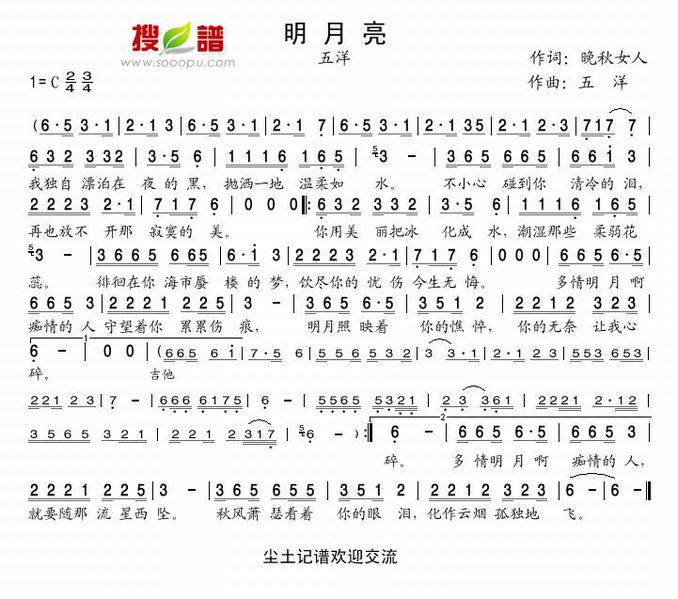 搜谱
www.sooopu.com
明月亮
五洋
作词：晚秋女人
作曲：五 洋
1=C 2/4 3/4
(6·5 3·1 | 2·1 3·1 | 2·1 7 | 6·5 3·1 | 2·1 35 | 2·1 2·3 | 717 7 |
632 332 | 3·5 6 | 1116 165 | 3 - | 365 665 | 661 3 |
我独自 漂泊在 夜的黑，抛洒一地 温柔如 水。 不小心 碰到你 清冷的泪，
2223 2·1 | 717 6 | 0 0 0 |: 632 332 | 3·5 6 | 1116 165 |
再也放不 开那 寂寞的 美。 你用美 丽把冰 化成 水，潮湿那些 柔弱花
3 - | 3665 665 | 6·1 3 | 2223 2·1 | 717 6 | 0 0 | 665 6·5 |
蕊。 徘徊在你 海市蜃 楼的梦，饮尽你的 忧伤 今生无 悔。 多情明月啊
665 3 | 2221 225 | 3 - | 365 655 | 351 2 | 2212 323 |
痴情的人 守望着你 累累伤 痕， 明月照 映着 你的憔 悴，你的无奈 让我心
1
6 - | 0 0 | (665 6 i | 7·5 6 | 56 532 | 3 3·1 | 2·1 23 | 553 653 |
碎。 吉他
221 23 | 7 - | 666 6175 | 6 - | 5565 5321 | 2 3 361 |
3565 321 | 221 2317 | 6 -) :| 6 - | 665 6·5 | 665 3 |
2
碎。 多情明月啊 痴情的人，
2221 225 | 3 - | 365 655 | 351 2 | 2212 323 | 6 - | 6 - ||
就要随那 流星西 坠。 秋风萧 瑟看着 你的眼 泪，化作云烟 孤独地 飞。
尘土记谱欢迎交流